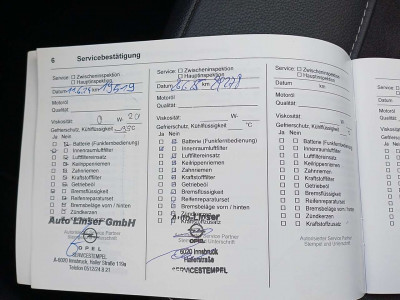 6 Servicebestätigung
Service: Zwischeninspektion
Hauptinspektion
Datum 11.6.14 km 19519
Motoröl
Qualität
Viskosität: 0 W- 20
Gefrierschutz, Kühlflüssigkeit
Ja Nein
Batterie (Funkfernbedienung)
Innenraumluftfilter
Luftfiltereinsatz
Keilrippenriemen
Zahnriemen
Kraftstofffilter
Getriebeöl
Bremsflüssigkeit
Reifenreparaturset
Bremsbeläge vorn / hinten
Zündkerzen
Auto Linser GmbH
OPEL
SERVICESTEMPEL
A-6020 Innsbruck, Haller Straße 119a
Service: Zwischeninspektion
Hauptinspektion
Datum km
Motoröl
Qualität
Viskosität: W-
Gefrierschutz, Kühlflüssigkeit °C
Ja Nein
Batterie (Funkfernbedienung)
Innenraumluftfilter
Luftfiltereinsatz
Keilrippenriemen
Zahnriemen
Kraftstofffilter
Getriebeöl
Bremsflüssigkeit
Reifenreparaturset
Bremsbeläge vorn / hinten
Zündkerzen
OPEL
6020 Innsbruck
SERVICESTEMPEL
Service: Zwischeninspektion
Hauptinspektion
Datum km
Motoröl
Qualität
Viskosität: W-
Gefrierschutz, Kühlflüssigkeit
Ja Nein
Batterie (Funkfernbedienung)
Innenraumluftfilter
Luftfiltereinsatz
Keilrippenriemen
Zahnriemen
Kraftstofffilter
Getriebeöl
Bremsflüssigkeit
Reifenreparaturset
Bremsbeläge vorn / hinten
Zündkerzen
Autorisierter Service Partner
Stempel und Unterschrift